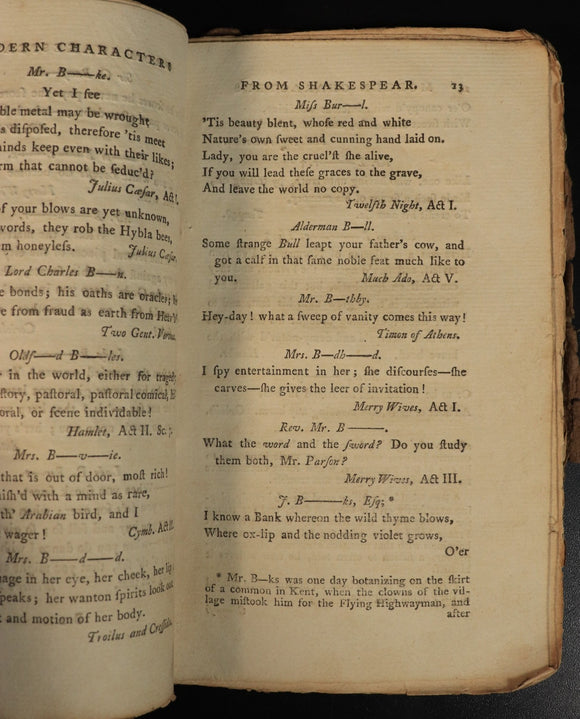 DERN CHARACTERS
Mr. B——ke.
Yet I ſee
ble metal may be wrought
s diſpoſed, therefore 'tis meet
minds keep even with their likes;
rm that cannot be ſeduc'd?
Julius Cæſar, Act I.
f your blows are yet unknown,
words, they rob the Hybla bees,
m honeyleſs.
Julius Cæſar.
Lord Charles B——n.
e bonds; his oaths are oracles;
e from fraud as earth from
Two Gent.
Oldſ—d B——les.
r in the world, either for
ſtory, paſtoral, paſtoral comical,
oral, or ſcene individable!
Hamlet, Act II. Sc.
Mrs. B——v—ie.
that is out of door, moſt rich!
niſh'd with a mind as rare,
th' Arabian bird, and I
wager!
Cymb. Act
Mrs. B——d—d.
uage in her eye, her cheek, her lip;
peaks; her wanton ſpirits look out
t and motion of her body.
Troilus and
FROM SHAKESPEAR. 23
Miſs Bur—l.
'Tis beauty blent, whoſe red and white
Nature's own ſweet and cunning hand laid on.
Lady, you are the cruel'ſt ſhe alive,
If you will lead theſe graces to the grave,
And leave the world no copy.
Twelfth Night, Act I.
Alderman B—ll.
Some ſtrange Bull leapt your father's cow, and
got a calf in that ſame noble feat much like to
you. Much Ado, Act V.
Mr. B—thby.
Hey-day! what a ſweep of vanity comes this way!
Timon of Athens.
Mrs. B—dh——d.
I ſpy entertainment in her; ſhe diſcourſes—ſhe
carves—ſhe gives the leer of invitation!
Merry Wives, Act I.
Rev. Mr. B———.
What the word and the ſword? Do you ſtudy
them both, Mr. Parſon?
Merry Wives, Act III.
J. B———ks, Eſq; *
I know a Bank whereon the wild thyme blows,
Where ox-lip and the nodding violet grows,
O'er
* Mr. B—ks was one day botanizing on the ſkirt
of a common in Kent, when the clowns of the vil-
lage miſtook him for the Flying Highwayman, and
after